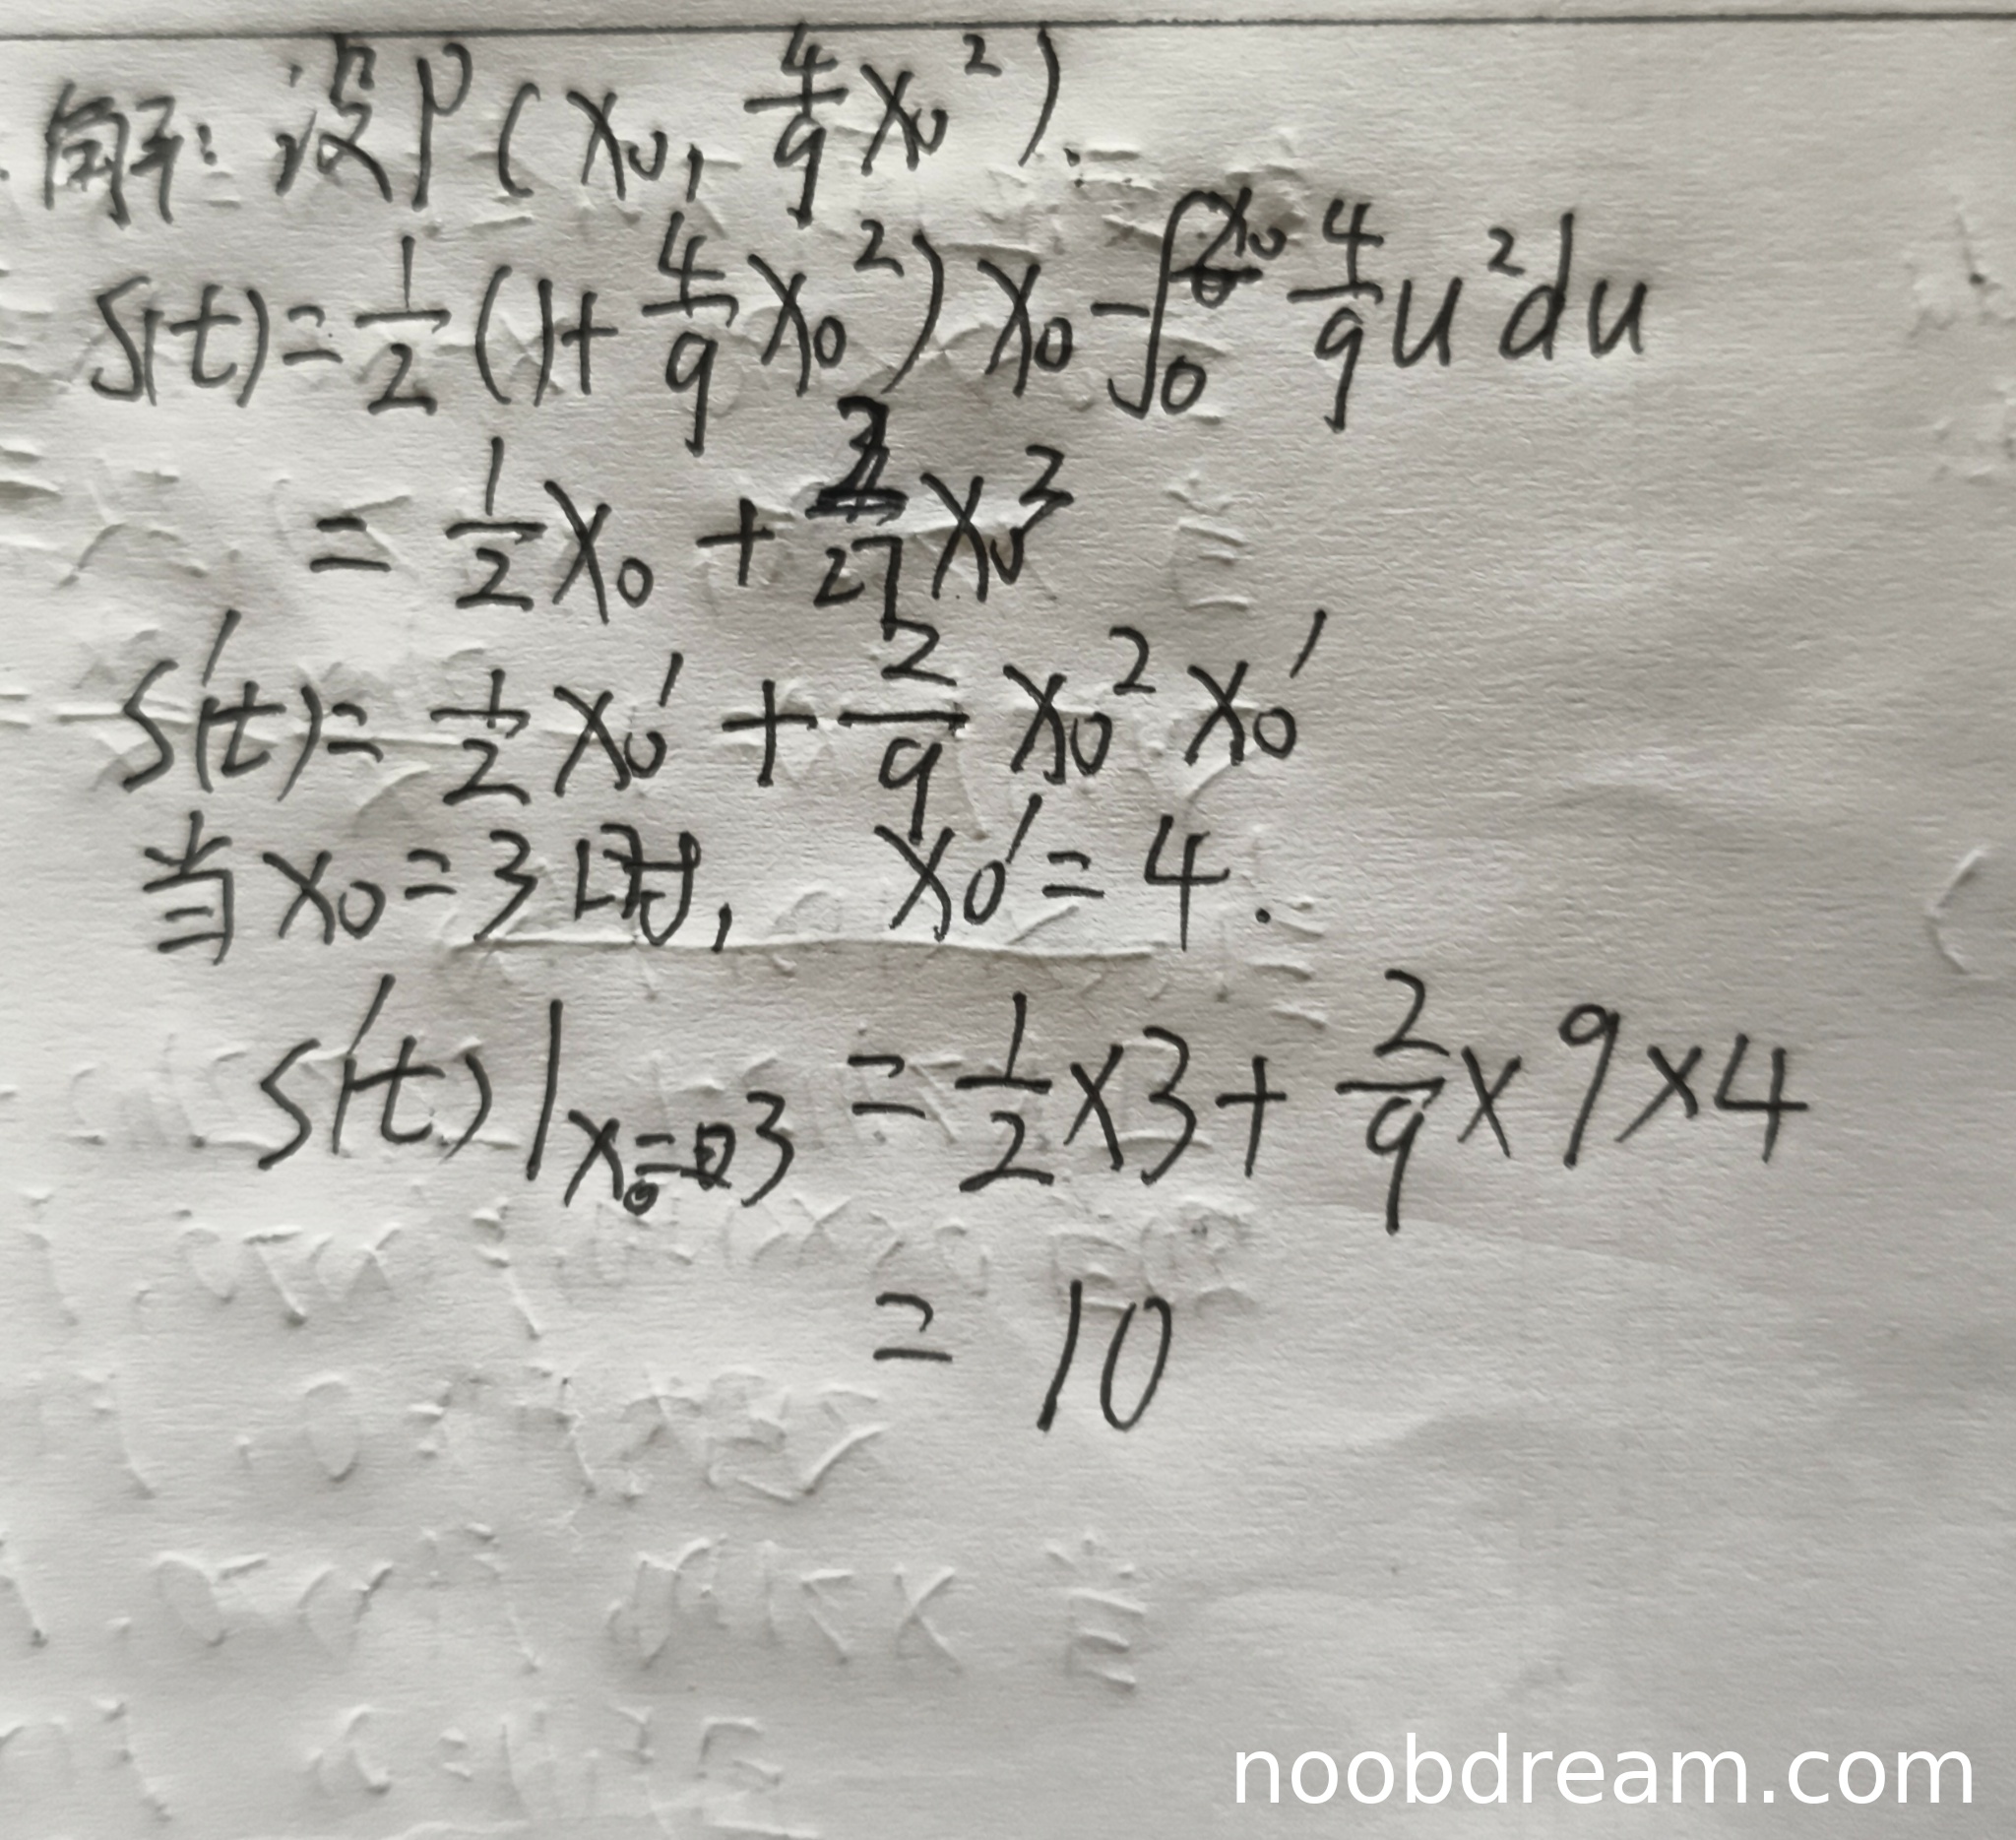 解：设P(x₀, 4/9 x₀²).
S(t) = 1/2 (1 + 4/9 x₀²) x₀ - ∫₀^x₀ 4/9 u² du
= 1/2 x₀ + 2/27 x₀³
S'(t) = 1/2 x₀' + 2/9 x₀² x₀'
当 x₀ = 3 时, x₀' = 4.
S'(t)|x₀=3 = 1/2 × 3 + 2/9 × 9 × 4
= 10
noobdream.com